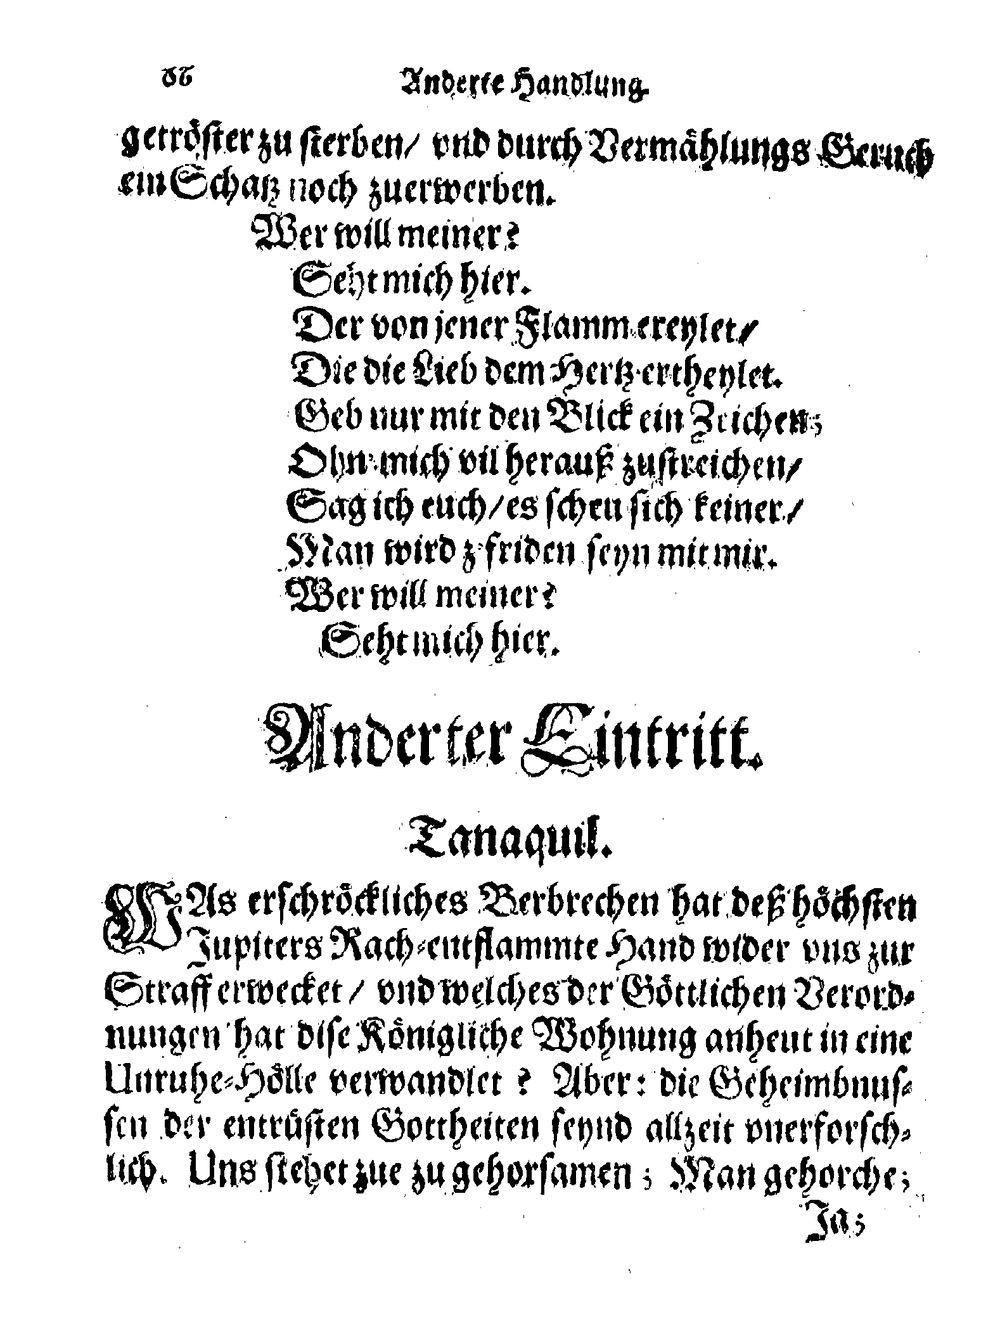 66 Anderte Handlung.
getröster zu sterben/ vnd durch Vermählungs Geruch
ein Schatz noch zuerwerben.
Wer will meiner?
Seht mich hier.
Der von jener Flamm ereylet/
Die die Lieb dem Hertz ertheylet.
Geb nur mit den Blick ein Zeichen;
Ohn mich vil herauß zustreichen/
Sag ich euch/ es scheu sich keiner/
Man wird z friden seyn mit mir.
Wer will meiner?
Seht mich hier.
Anderter Eintritt.
Tanaquil.
WAs erschröckliches Verbrechen hat deß höchsten
Jupiters Rach-entflammte Hand wider vns zur
Straff erwecket/ vnd welches der Göttlichen Verord-
nungen hat dise Königliche Wohnung anheut in eine
Unruhe-Hölle verwandlet? Aber: die Geheimbnus-
sen der entrüsten Gottheiten seynd allzeit vnerforsch-
lich. Uns stehet zue zu gehorsamen; Man gehorche;
Ja;